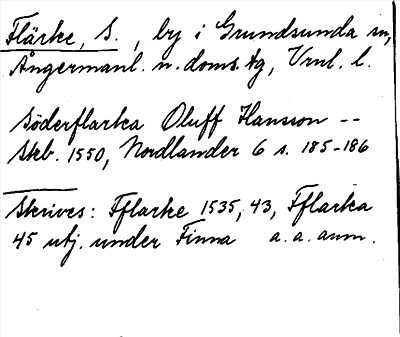 Flärke, S., by i Grundsunda sn,
Ångermanl. n. doms. tg, Vnl. l.
Söderflarka Oluff Hansson --
Skb. 1550, Nordlander 6 s. 185-186
Skrives: Fflarke 1535, 43, Fflarka
45 utj. under Finna a. a. anm.